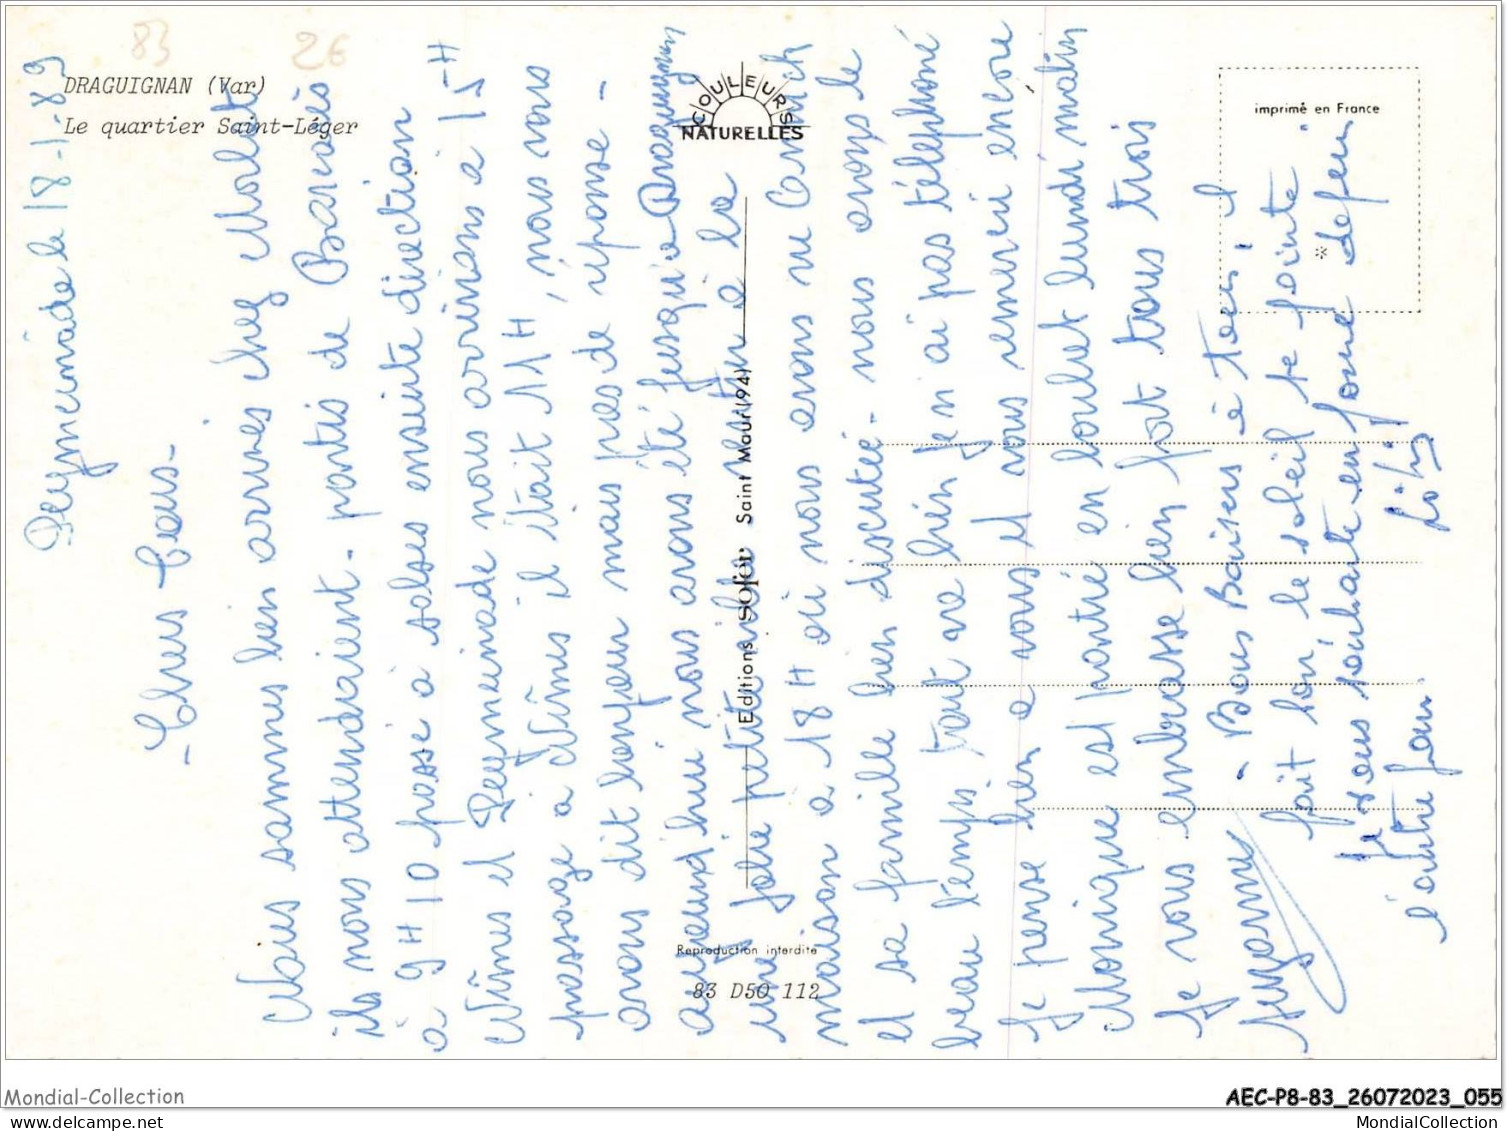 83
26
DRAGUIGNAN (Var)
Le quartier Saint-Léger
COULEURS
NATURELLES
imprimé en France
Editions SOFER Saint Maur (94)
Reproduction interdite
83 D50 112
Peymeinade le 18-1-89
- Chers tous -
Nous sommes bien arrivés chez
ils nous attendraient - partis de
à 9H10 passé à ensuite direction
Nîmes et Peymeinade nous arrivions à 15H
passage à Nîmes il était 11H, nous vous
avons dit bonjour mais pas de réponse -
aujourd'hui nous avons été jusqu'à Draguignan
une jolie petite ville retour à la
maison à 18H où nous avons vu
et sa famille bien discutée - nous avons le
beau temps tout va bien je n'ai pas téléphoné
Je pense bien à vous et vous remercie encore
Monique est rentré en lundi matin
Je vous embrasse bien fort tous trois
Suzanne - Bons Baisers à tous, il
fait bon, le soleil te pointe.
Je vous souhaite en forme
l'autre jour.